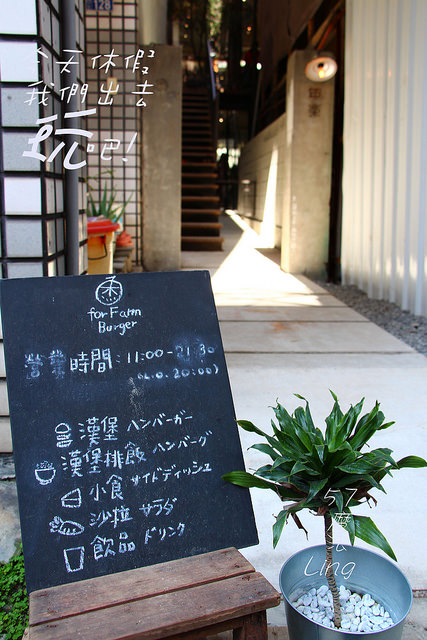 今天休假
我們出去
玩吧!
for Farm
Burger
營業時間:11:00-21:30
(L.O.20:00)
漢堡 ハンバーガー
漢堡排飯 ハンバーグ
小食 サイドディッシュ
沙拉 サラダ
飲品 ドリンク
Ling